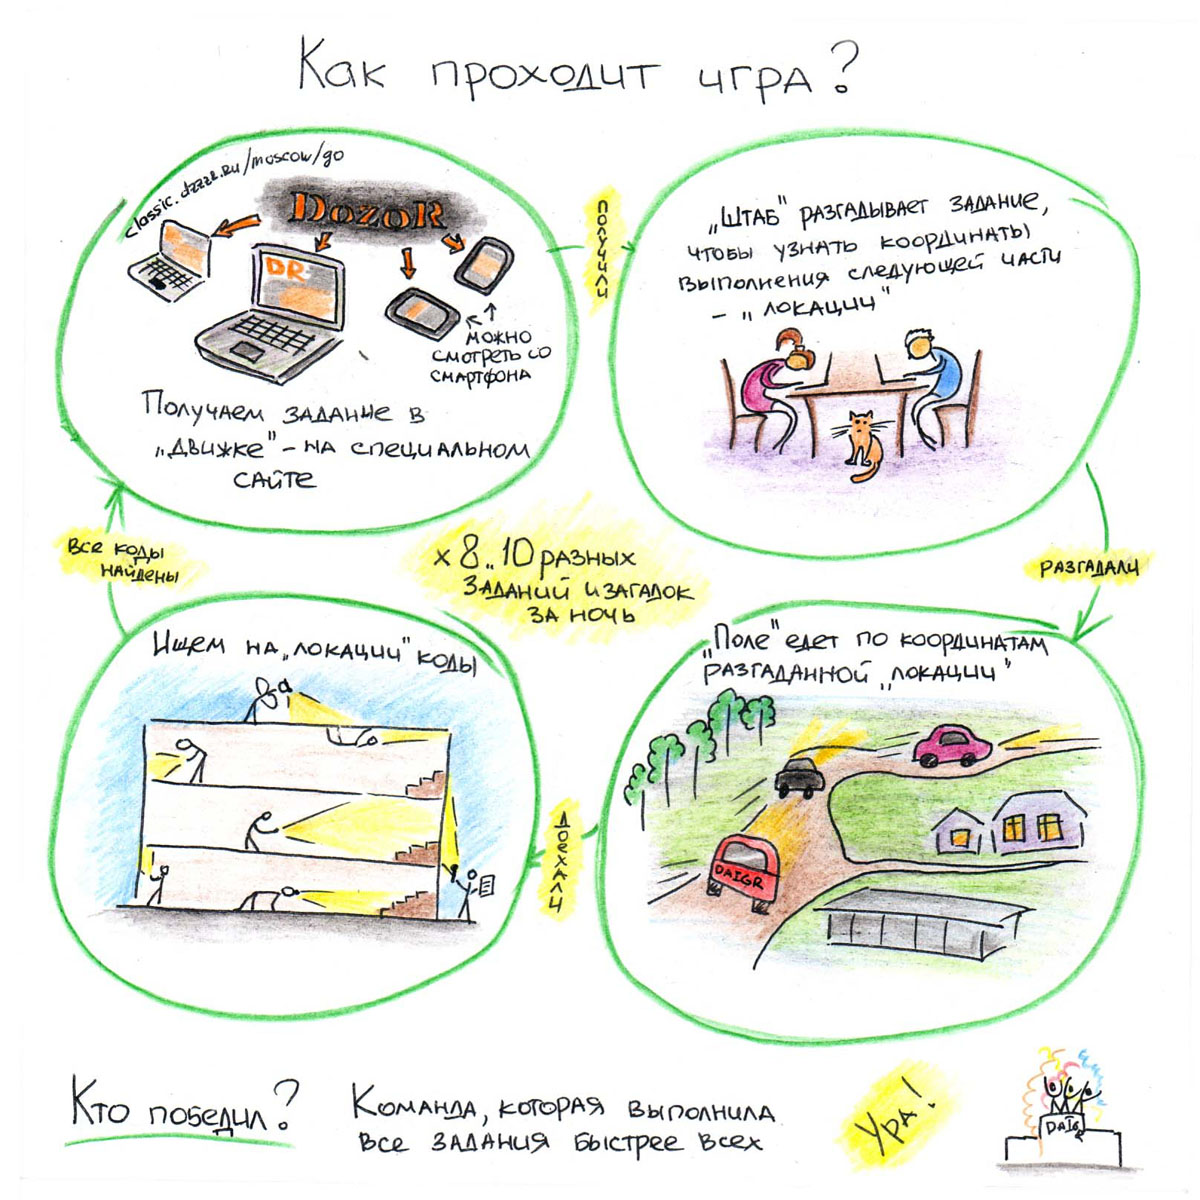 Как проходит игра?
classic.dzzzr.ru/moscow/go
DozoR
DR
можно
смотреть со
смартфона
Получаем задание в
„движке" - на специальном
сайте
получили
„Штаб" разгадывает задание,
чтобы узнать координаты
выполнения следующей части
- „локации"
разгадали
„Поле" едет по координатам
разгаданной „локации"
DAIGR
доехали
Ищем на „локации" коды
все коды
найдены
х 8..10 разных
заданий и загадок
за ночь
Кто победил?
Команда, которая выполнила
все задания быстрее всех
Ура!
DAIGR